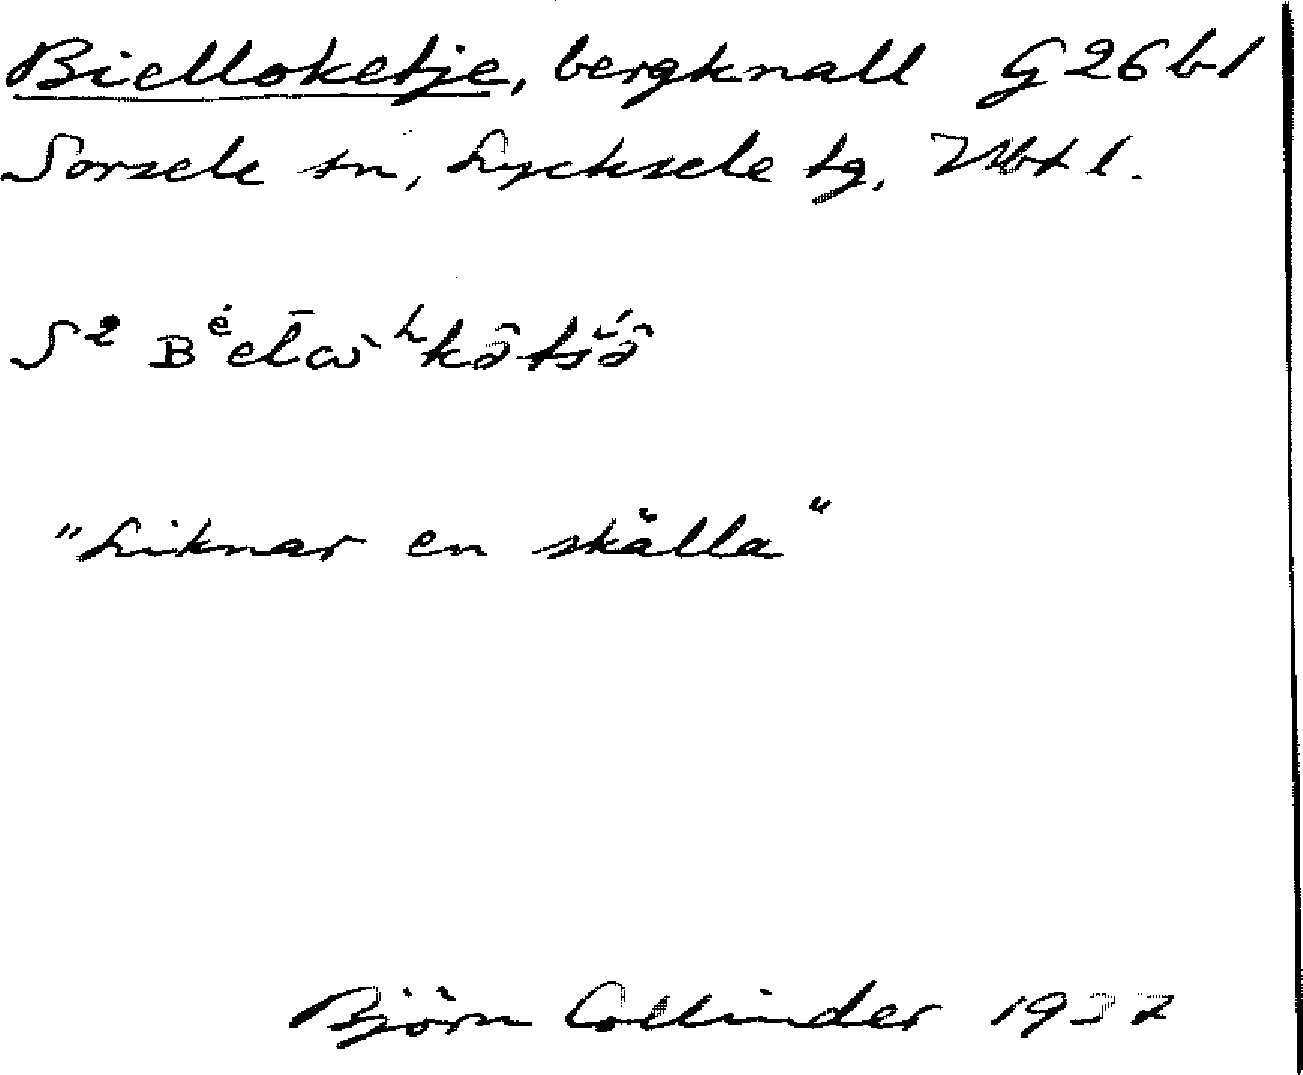 Bielloketje, bergknall G26b1
Sorsele sn, Lycksele tg, Vbtl.
S²
"Liknar en skälla"
Björn Collinder 1937